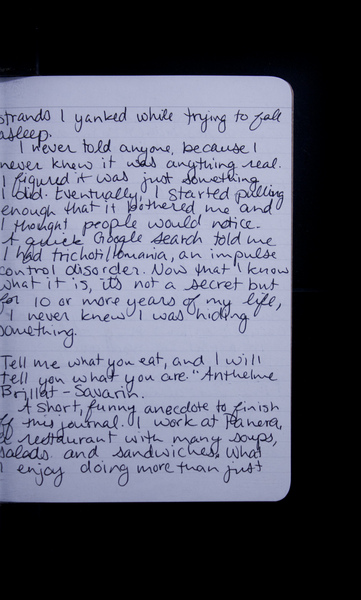 strands I yanked while trying to fall
asleep.
I never told anyone, because I
never knew it was anything real.
I figured it was just something
I did. Eventually, I started pulling
enough that it bothered me and
I thought people would notice.
A quick Google search told me
I had trichotillomania, an impulse
control disorder. Now that I know
what it is, it's not a secret but
for 10 or more years of my life,
I never knew I was hiding
something.
Tell me what you eat, and I will
tell you what you are." Anthelme
Brillat-Savarin.
A short, funny anecdote to finish
off this journal. I work at Panera,
a restaurant with many soups,
salads and sandwiches. What
I enjoy doing more than just